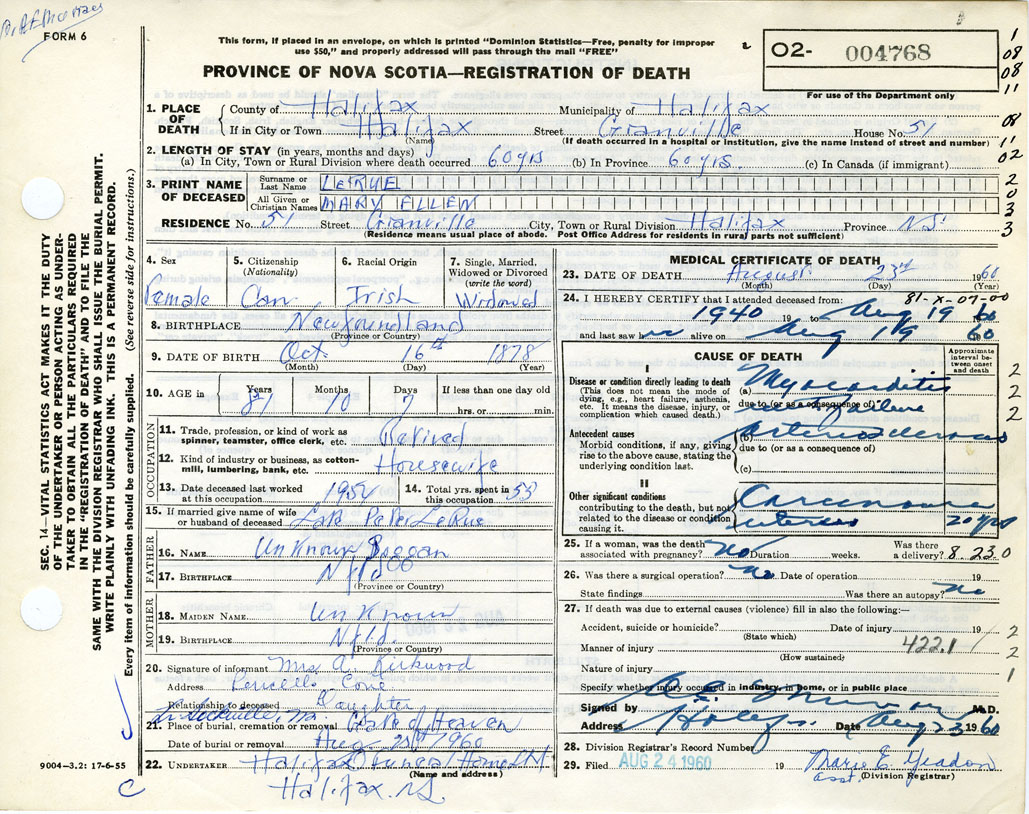 FORM 6
This form, if placed in an envelope, on which is printed "Dominion Statistics—Free, penalty for improper
use $50," and properly addressed will pass through the mail "FREE"
PROVINCE OF NOVA SCOTIA—REGISTRATION OF DEATH
O2- 004768
For use of the Department only
1. PLACE OF DEATH
County of Halifax Municipality of Halifax
If in City or Town Halifax Street Granville House No. 51
(Name) (If death occurred in a hospital or institution, give the name instead of street and number)
2. LENGTH OF STAY (in years, months and days)
(a) In City, Town or Rural Division where death occurred 60 yrs (b) In Province 60 yrs. (c) In Canada (if immigrant)
3. PRINT NAME OF DECEASED
Surname or Last Name LeRUE
All Given or Christian Names MARY ELLEN
RESIDENCE No. 51 Street Granville City, Town or Rural Division Halifax Province N.S.
(Residence means usual place of abode. Post Office Address for residents in rural parts not sufficient)
4. Sex Female
5. Citizenship (Nationality) Can.
6. Racial Origin Irish
7. Single, Married, Widowed or Divorced (write the word) Widowed
8. BIRTHPLACE Newfoundland
(Province or Country)
9. DATE OF BIRTH Oct. 16th 1878
(Month) (Day) (Year)
10. AGE in Years 81 Months 10 Days 7 If less than one day old
hrs. or min.
OCCUPATION
11. Trade, profession, or kind of work as spinner, teamster, office clerk, etc. Retired
12. Kind of industry or business, as cotton-mill, lumbering, bank, etc. Housewife
13. Date deceased last worked at this occupation 195
14. Total yrs. spent in this occupation 55
15. If married give name of wife or husband of deceased Late Peter LeRue
FATHER
16. NAME Unknown
17. BIRTHPLACE Nfld
(Province or Country)
MOTHER
18. MAIDEN NAME Unknown
19. BIRTHPLACE Nfld.
(Province or Country)
20. Signature of informant Mrs A. Kirkwood
Address Cove
Relationship to deceased Daughter
21. Place of burial, cremation or removal Gate of Heaven
Date of burial or removal Aug. 25th 1960
22. UNDERTAKER Halifax Funeral Home Ltd
(Name and address)
Halifax. N.S.
9004—3.2: 17-6-55
SEC. 14—VITAL STATISTICS ACT MAKES IT THE DUTY
OF THE UNDERTAKER OR PERSON ACTING AS UNDER-
TAKER TO OBTAIN ALL THE PARTICULARS REQUIRED
IN THE "REGISTRATION OF DEATH" AND TO FILE THE
SAME WITH THE DIVISION REGISTRAR WHO SHALL ISSUE THE BURIAL PERMIT.
WRITE PLAINLY WITH UNFADING INK. THIS IS A PERMANENT RECORD.
Every item of information should be carefully supplied. (See reverse side for instructions.)
MEDICAL CERTIFICATE OF DEATH
23. DATE OF DEATH August 23rd 1960
(Month) (Day) (Year)
81-X-07-00
24. I HEREBY CERTIFY that I attended deceased from:
1940 19 to Aug 19 1960
and last saw h alive on Aug 19 1960
CAUSE OF DEATH
Approximate interval between onset and death
I
Disease or condition directly leading to death
(This does not mean the mode of dying, e.g., heart failure, asthenia, etc. It means the disease, injury, or complication which caused death.)
(a) Myocarditis
due to (or as a consequence of)
Antecedent causes
Morbid conditions, if any, giving rise to the above cause, stating the underlying condition last.
(b)
due to (or as a consequence of)
(c)
II
Other significant conditions contributing to the death, but not related to the disease or condition causing it.
Carcinoma
uterus 20 yrs
25. If a woman, was the death associated with pregnancy? No Duration weeks. Was there a delivery? 8.23.0
26. Was there a surgical operation? No Date of operation 19
State findings Was there an autopsy? No
27. If death was due to external causes (violence) fill in also the following:—
Accident, suicide or homicide? Date of injury 19
(State which)
Manner of injury 422.1
(How sustained)
Nature of injury
Specify whether injury occurred in industry, in home, or in public place
Signed by M.D.
Address Date Aug 23 1960
28. Division Registrar's Record Number
29. Filed AUG 24 1960 19 Marie E.
asst. (Division Registrar)
1
08
08
11
08
11
02
2
0
3
3
2
2
2
2
2
1